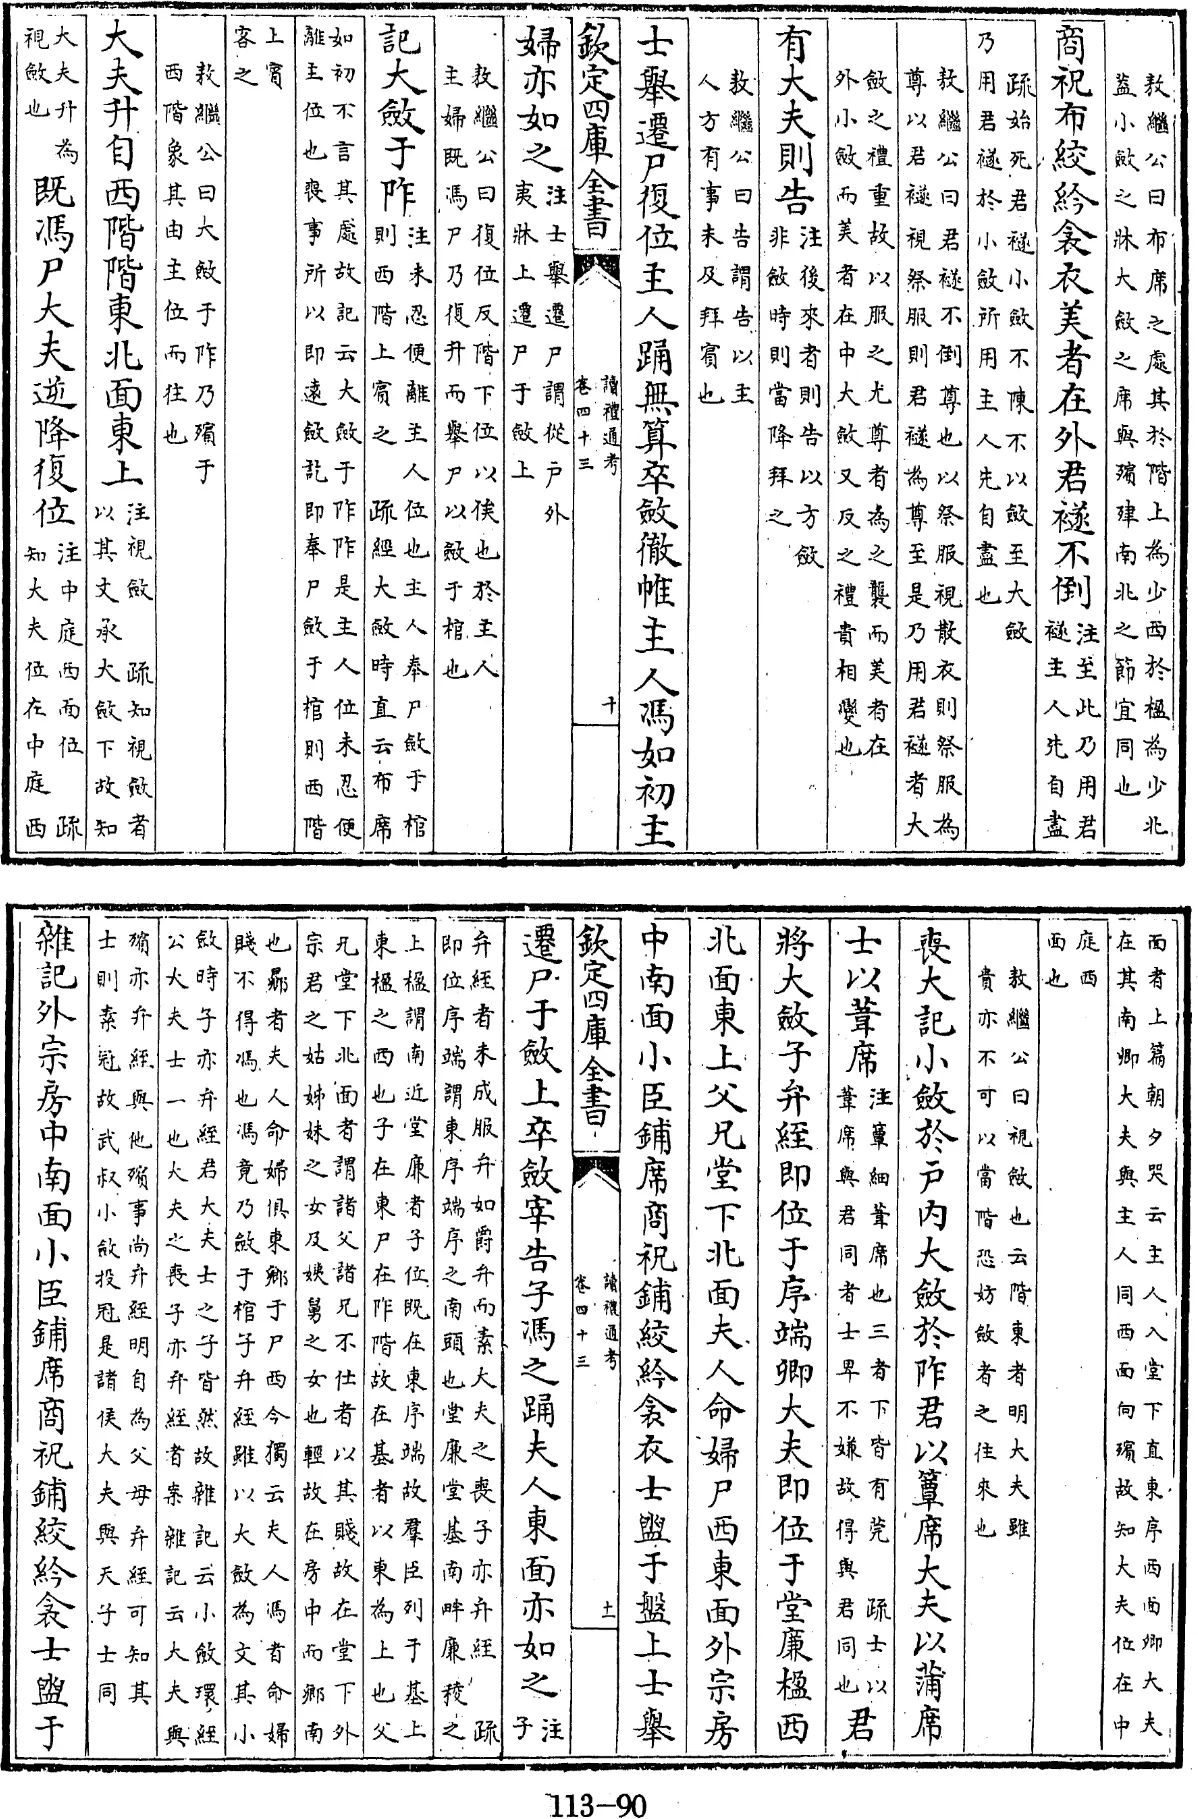 敖繼公曰布席之處其於階上為少西於楹為少北
蓋小斂之牀大斂之席與殯肂南北之節宜同也
商祝布絞紟衾衣美者在外君襚不倒注至此乃用君
襚主人先自盡
疏始死君襚小斂不陳不以斂至大斂
乃用君襚於小斂所用主人先自盡也
敖繼公曰君襚不倒尊也以祭服視散衣則祭服為
尊以君襚視祭服則君襚為尊至是乃用君襚者大
斂之禮重故以服之尤尊者為之襲而美者在
外小斂而美者在中大斂又反之禮貴相變也
有大夫則告注後來者則告以方斂
非斂時則當降拜之
敖繼公曰告謂告以主
人方有事未及拜賓也
士舉遷尸復位主人踊無算卒斂徹帷主人馮如初主
欽定四庫全書
讀禮通考
卷四十三
十
婦亦如之注士舉遷尸謂從戶外
夷牀上遷尸于斂上
敖繼公曰復位反階下位以俟也於主人
主婦既馮尸乃復升而舉尸以斂于棺也
記大斂于阼注未忍便離主人位也主人奉尸斂于棺
則西階上賓之 疏經大斂時直云布席
如初不言其處故記云大斂于阼阼是主人位未忍便
離主位也喪事所以即遠斂訖即奉尸斂于棺則西階
上賓
客之
敖繼公曰大斂于阼乃殯于
西階象其由主位而往也
大夫升自西階階東北面東上注視斂 疏知視斂者
以其文承大斂下故知
大夫升為
視斂也
既馮尸大夫逆降復位注中庭西面位 疏
知大夫位在中庭西
面者上篇朝夕哭云主人入堂下直東序西面卿大夫
在其南卿大夫與主人同西面向殯故知大夫位在中
庭西
面也
敖繼公曰視斂也云階東者明大夫雖
貴亦不可以當階恐妨斂者之往來也
喪大記小斂於戶內大斂於阼君以簟席大夫以蒲席
士以葦席注簟細葦席也三者下皆有莞 疏士以
葦席與君同者士卑不嫌故得與君同也
君
將大斂子弁絰即位于序端卿大夫即位于堂廉楹西
北面東上父兄堂下北面夫人命婦尸西東面外宗房
中南面小臣鋪席商祝鋪絞紟衾衣士盥于盤上士舉
欽定四庫全書
讀禮通考
卷四十三
十一
遷尸于斂上卒斂宰告子馮之踊夫人東面亦如之注
子
弁絰者未成服弁如爵弁而素大夫之喪子亦弁絰 疏
即位序端謂東序端序之南頭也堂廉堂基南畔廉稜之
上楹謂南近堂廉者子位既在東序端故羣臣列于基上
東楹之西也子在東尸在阼階故在基者以東為上也父
兄堂下北面者謂諸父諸兄不仕者以其賤故在堂下外
宗君之姑姊妹之女及姨舅之女也輕故在房中而鄉南
也鄉者夫人命婦俱東鄉于尸西今獨云夫人馮者命婦
賤不得馮也馮竟乃斂于棺子弁絰雖以大斂為文其小
斂時子亦弁絰君大夫士之子皆然故雜記云小斂環絰
公大夫士一也大夫之喪子亦弁絰者案雜記云大夫與
殯亦弁絰與他殯事尚弁絰明自為父母弁絰可知其
士則素冠故武叔小斂投冠是諸侯大夫與天子士同
雜記外宗房中南面小臣鋪席商祝鋪絞紟衾士盥于
113-90